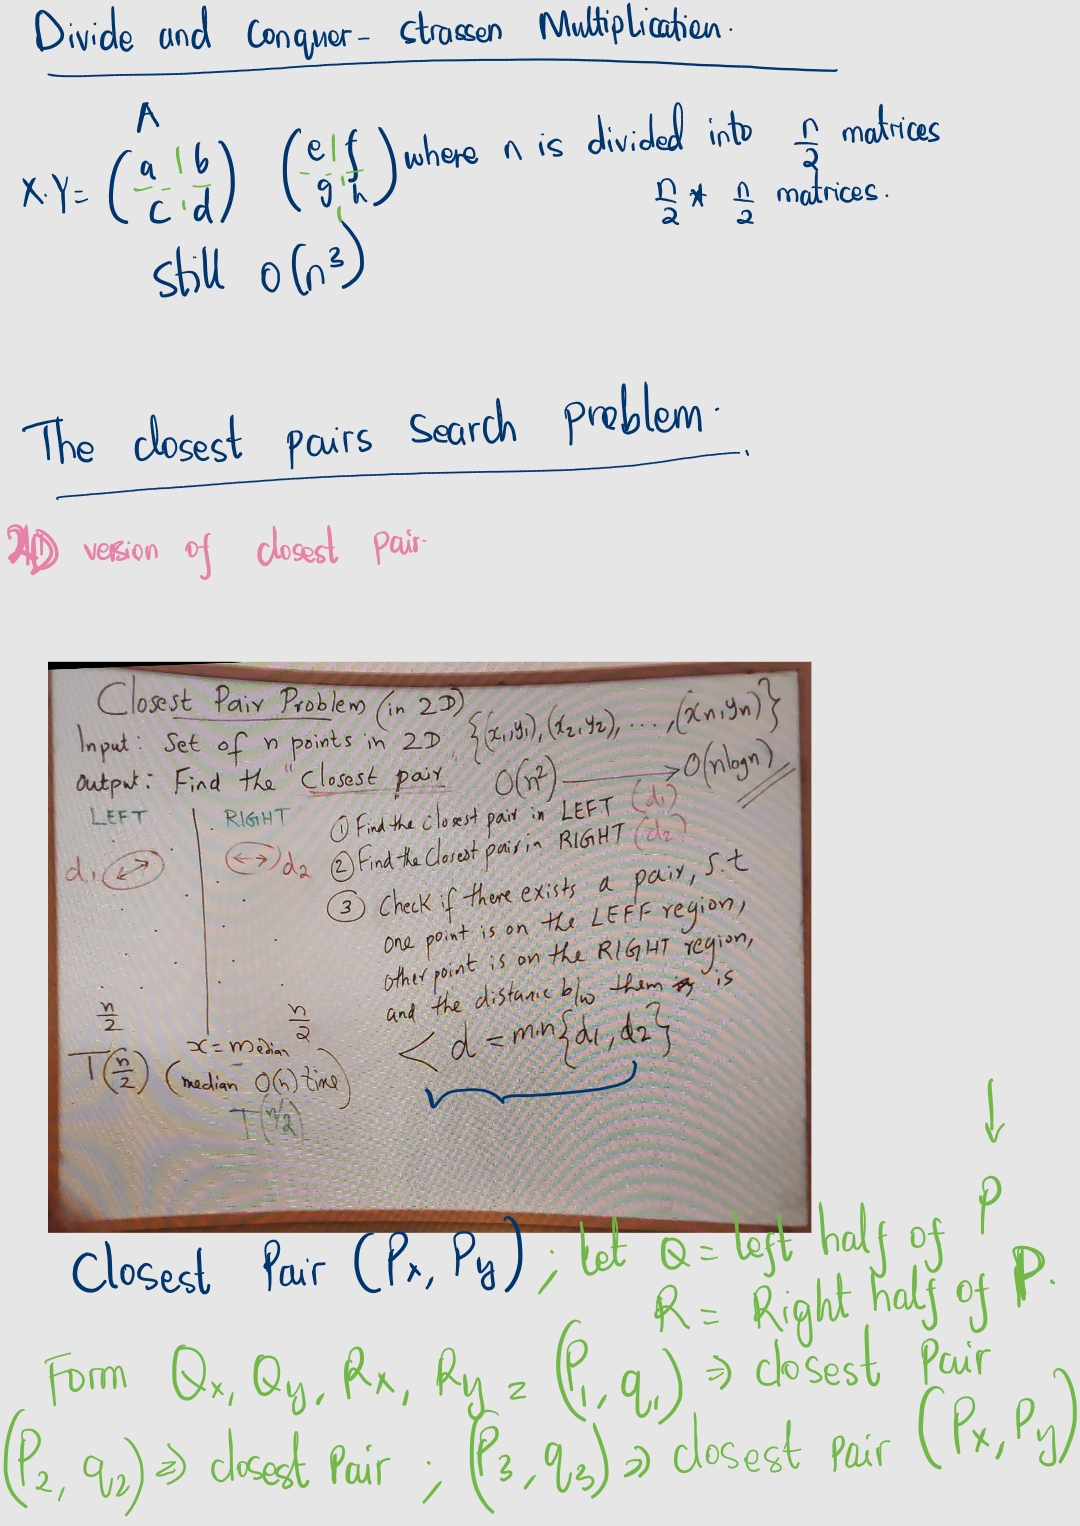 Divide and Conquer - strassen Multiplication.
A
X.Y= (a b c d) (e f g h) where n is divided into n/2 matrices
n/2 * n/2 matrices.
still O(n³)
The closest pairs Search problem.
version of closest pair.
Closest Pair Problem (in 2D)
Input: Set of n points in 2D {(x₁,y₁), (x₂,y₂), ..., (xn,yn)}
Output: Find the "Closest pair O(n²) → O(nlogn)
LEFT RIGHT
d₁ d₂
① Find the closest pair in LEFT (d₁)
② Find the Closest pair in RIGHT (d₂)
③ Check if there exists a pair, s.t
one point is on the LEFF region,
other point is on the RIGHT region,
and the distance b/w them is
< d = min{d₁, d₂}
n/2 n/2
x = median
T(n/2) (median O(n) time)
T(n/2)
Closest Pair (Px, Py) ; let Q = left half of P
R = Right half of P.
Form Qx, Qy, Rx, Ry = (P₁, q₁) ⇒ closest Pair
(P₂, q₂) ⇒ closest Pair ; (P₃, q₃) ⇒ closest Pair (Px, Py)